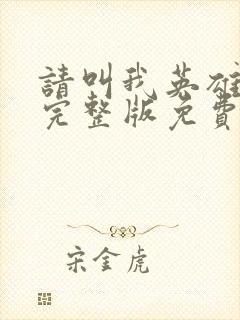 請叫我英雄
完整版免費
宋金虎